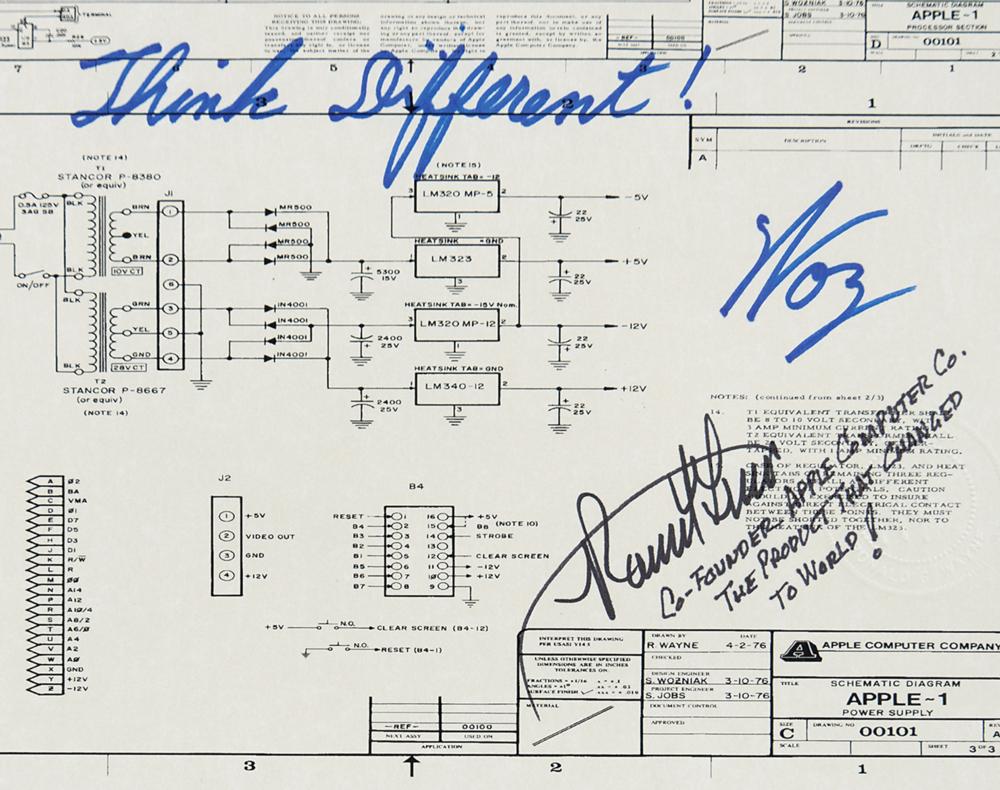 TERMINAL
NOTICE TO ALL PERSONS
RECEIVING THIS DRAWING:
Apple Computer Company.
-REF- 00100
S. JOBS 3-10-76
SCHEMATIC DIAGRAM
APPLE-1
PROCESSOR SECTION
D DRAWING NO 00101
7 5 4 3 2 1
Think Different!
3 2 1
REVISIONS
SYM DESCRIPTION INITIALS and DATE
DRFTG CHECK
A
(NOTE 14)
T1
STANCOR P-8380
(or equiv)
0.5A 125V
3AG SB
BLK
BLK
BRN
YEL
BRN
10V CT
ON/OFF
BLK
BLK
GRN
YEL
GND
28V CT
T2
STANCOR P-8667
(or equiv)
(NOTE 14)
J1
1
2
6
3
5
4
MR500
MR500
MR500
MR500
IN4001
IN4001
IN4001
IN4001
+ 5300
15V
+ 2400
25V
+ 2400
25V
(NOTE 15)
HEATSINK TAB= -12
3 LM320 MP-5 2
1
-5V
22
25V
HEATSINK =GND
1 LM 323 2
3
+5V
+ 22
25V
HEATSINK TAB= -15V Nom.
3 LM320 MP-12 2
1
-12V
22
25V
HEATSINK TAB=GND
1 LM340-12 2
3
+12V
+ 22
25V
Woz
NOTES: (continued from sheet 2/3)
14. T1 EQUIVALENT
BE 8 TO 10 VOLT
3 AMP MINIMUM
T2 EQUIVALENT
Ronald G Wayne
Co-FOUNDER APPLE COMPUTER Co.
THE PRODUCT THAT CHANGED
TO WORLD!
A Ø2
B BA
C VMA
D Ø1
E D7
F D5
H D3
J D1
K R/W
L R
M ØØ
N A14
P A12
R A10/4
S A8/2
T A6/Ø
U A4
V A2
W AØ
X GND
Y +12V
Z -12V
J2
1 +5V
2 VIDEO OUT
3 GND
4 +12V
B4
RESET 1 16 +5V
B4 2 15 B8 (NOTE 10)
B3 3 14 STROBE
B2 4 13
B1 5 12 CLEAR SCREEN
B5 6 11 -12V
B6 7 10 +12V
B7 8 9
+5V N.O. CLEAR SCREEN (B4-12)
N.O. RESET (B4-1)
INTERPRET THIS DRAWING
PER USASI Y14.5
UNLESS OTHERWISE SPECIFIED
DIMENSIONS ARE IN INCHES
TOLERANCES ON.
MATERIAL
DRAWN BY DATE
R.WAYNE 4-2-76
CHECKED
DESIGN ENGINEER
S.WOZNIAK 3-10-76
PROJECT ENGINEER
S. JOBS 3-10-76
DOCUMENT CONTROL
APPROVED
APPLE COMPUTER COMPANY
TITLE SCHEMATIC DIAGRAM
APPLE~1
POWER SUPPLY
SIZE C DRAWING NO 00101
SCALE SHEET 3 OF 3
-REF- 00100
NEXT ASSY USED ON
APPLICATION
3 2 1